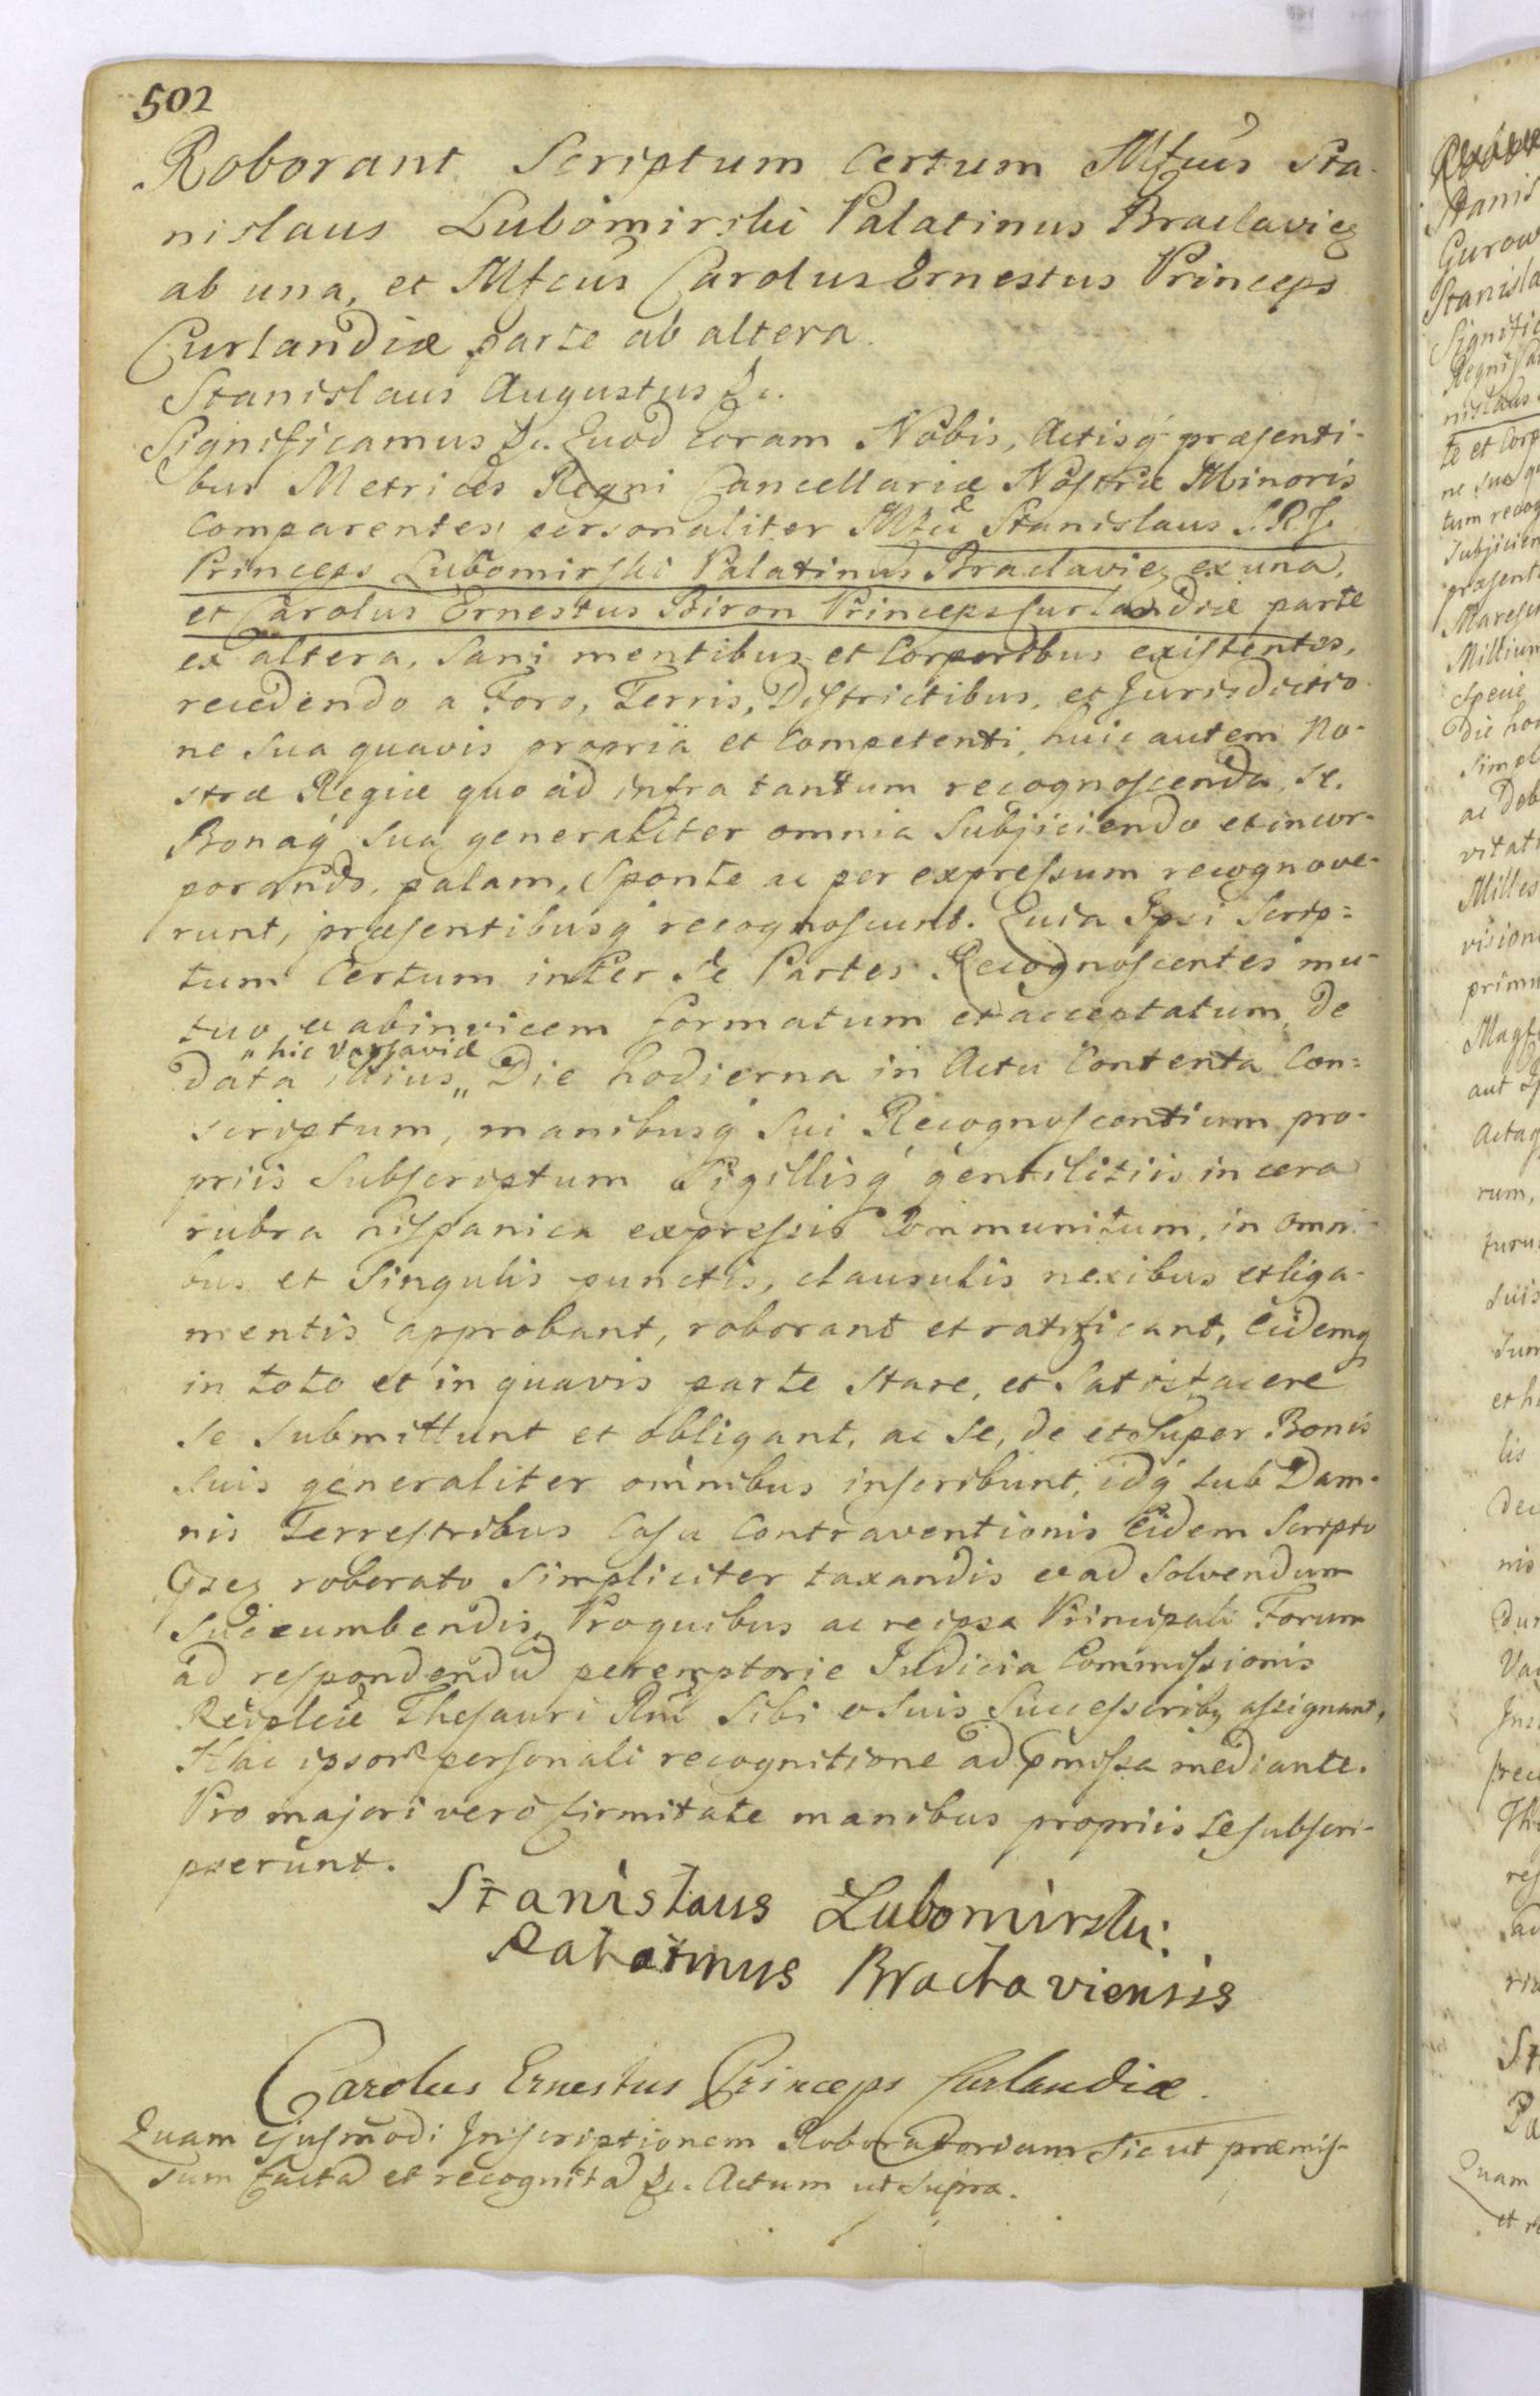 502
Roborant Scriptum Certum Mfcus Sta-
nislaus Lubomirski Palatinus Braclavien
ab una, et Mfcus Carolus Ernestus Princeps
Curlandiæ parte ab altera.
Stanislaus Augustus &c.
Significamus &c. Quod Coram Nobis, Actisq præsenti-
bus Metrices Regni Cancellariæ Nostræ Minoris
Comparentes personaliter Stanislaus S.R.I.
Princeps Lubomirski Palatinus Braclavien ex una,
et Carolus Ernestus Biron Princeps Curlandiæ parte
ex altera, Sani mentibus et Corporibus existentes,
recedendo a Foro, Terris, Districtibus, et Jurisdictio-
ne Sua quavis propria et Competenti, huic autem No-
stræ Regiæ quo ad infra tantum recognoscenda, se,
Bonaq Sua generaliter omnia Subjiciendo et incor-
porando, palam, Sponte ac per expressum recognove-
runt, præsentibusq recognoscunt. Quia Ipsi Scrip=
tum Certum inter Se Partes Recognoscentes mu-
tuo et abinvicem formatum et acceptatum, de
„hic Varsaviæ
data illius„ Die hodierna in Actu Contenta Con=
scriptum, manibusq Sui Recognoscentium pro-
priis Subscriptum Sigillisq gentilitiis in cera
rubra hispanica expressis Communitum, in omni-
bus et Singulis punctis, clausulis nexibus et liga-
mentis approbant, roborant et ratificant, Eidemq
in toto et in quavis parte Stare, et Satisfacere
Se Submittunt et obligant, ac Se, de et Super Bonis
Suis generaliter omnibus inscribunt, idq sub Dam-
nis Terrestribus Casu Contraventionis Eidem Scripto
roborato Simpliciter taxandis et ad Solvendum
Succumbendis, Proquibus ac reipsa Principali Forum
ad respondendũ peremptorie Judicia Commissionis
Reiplcæ Thesauri Rni Sibi et Suis Successoribq assignant,
Hac ipsor personali recognitione ad pmissa mediante.
Pro majori vero firmitate manibus propriis se subscri-
pserunt.
Stanislaus Lubomirski
Palatinus Braclaviensis
Carolus Ernestus Princeps Curlandiæ.
Quam ejusmodi Inscriptionem Roboratoriam Sic ut præmis-
sum facta et recognita &c. Actum ut Supra.